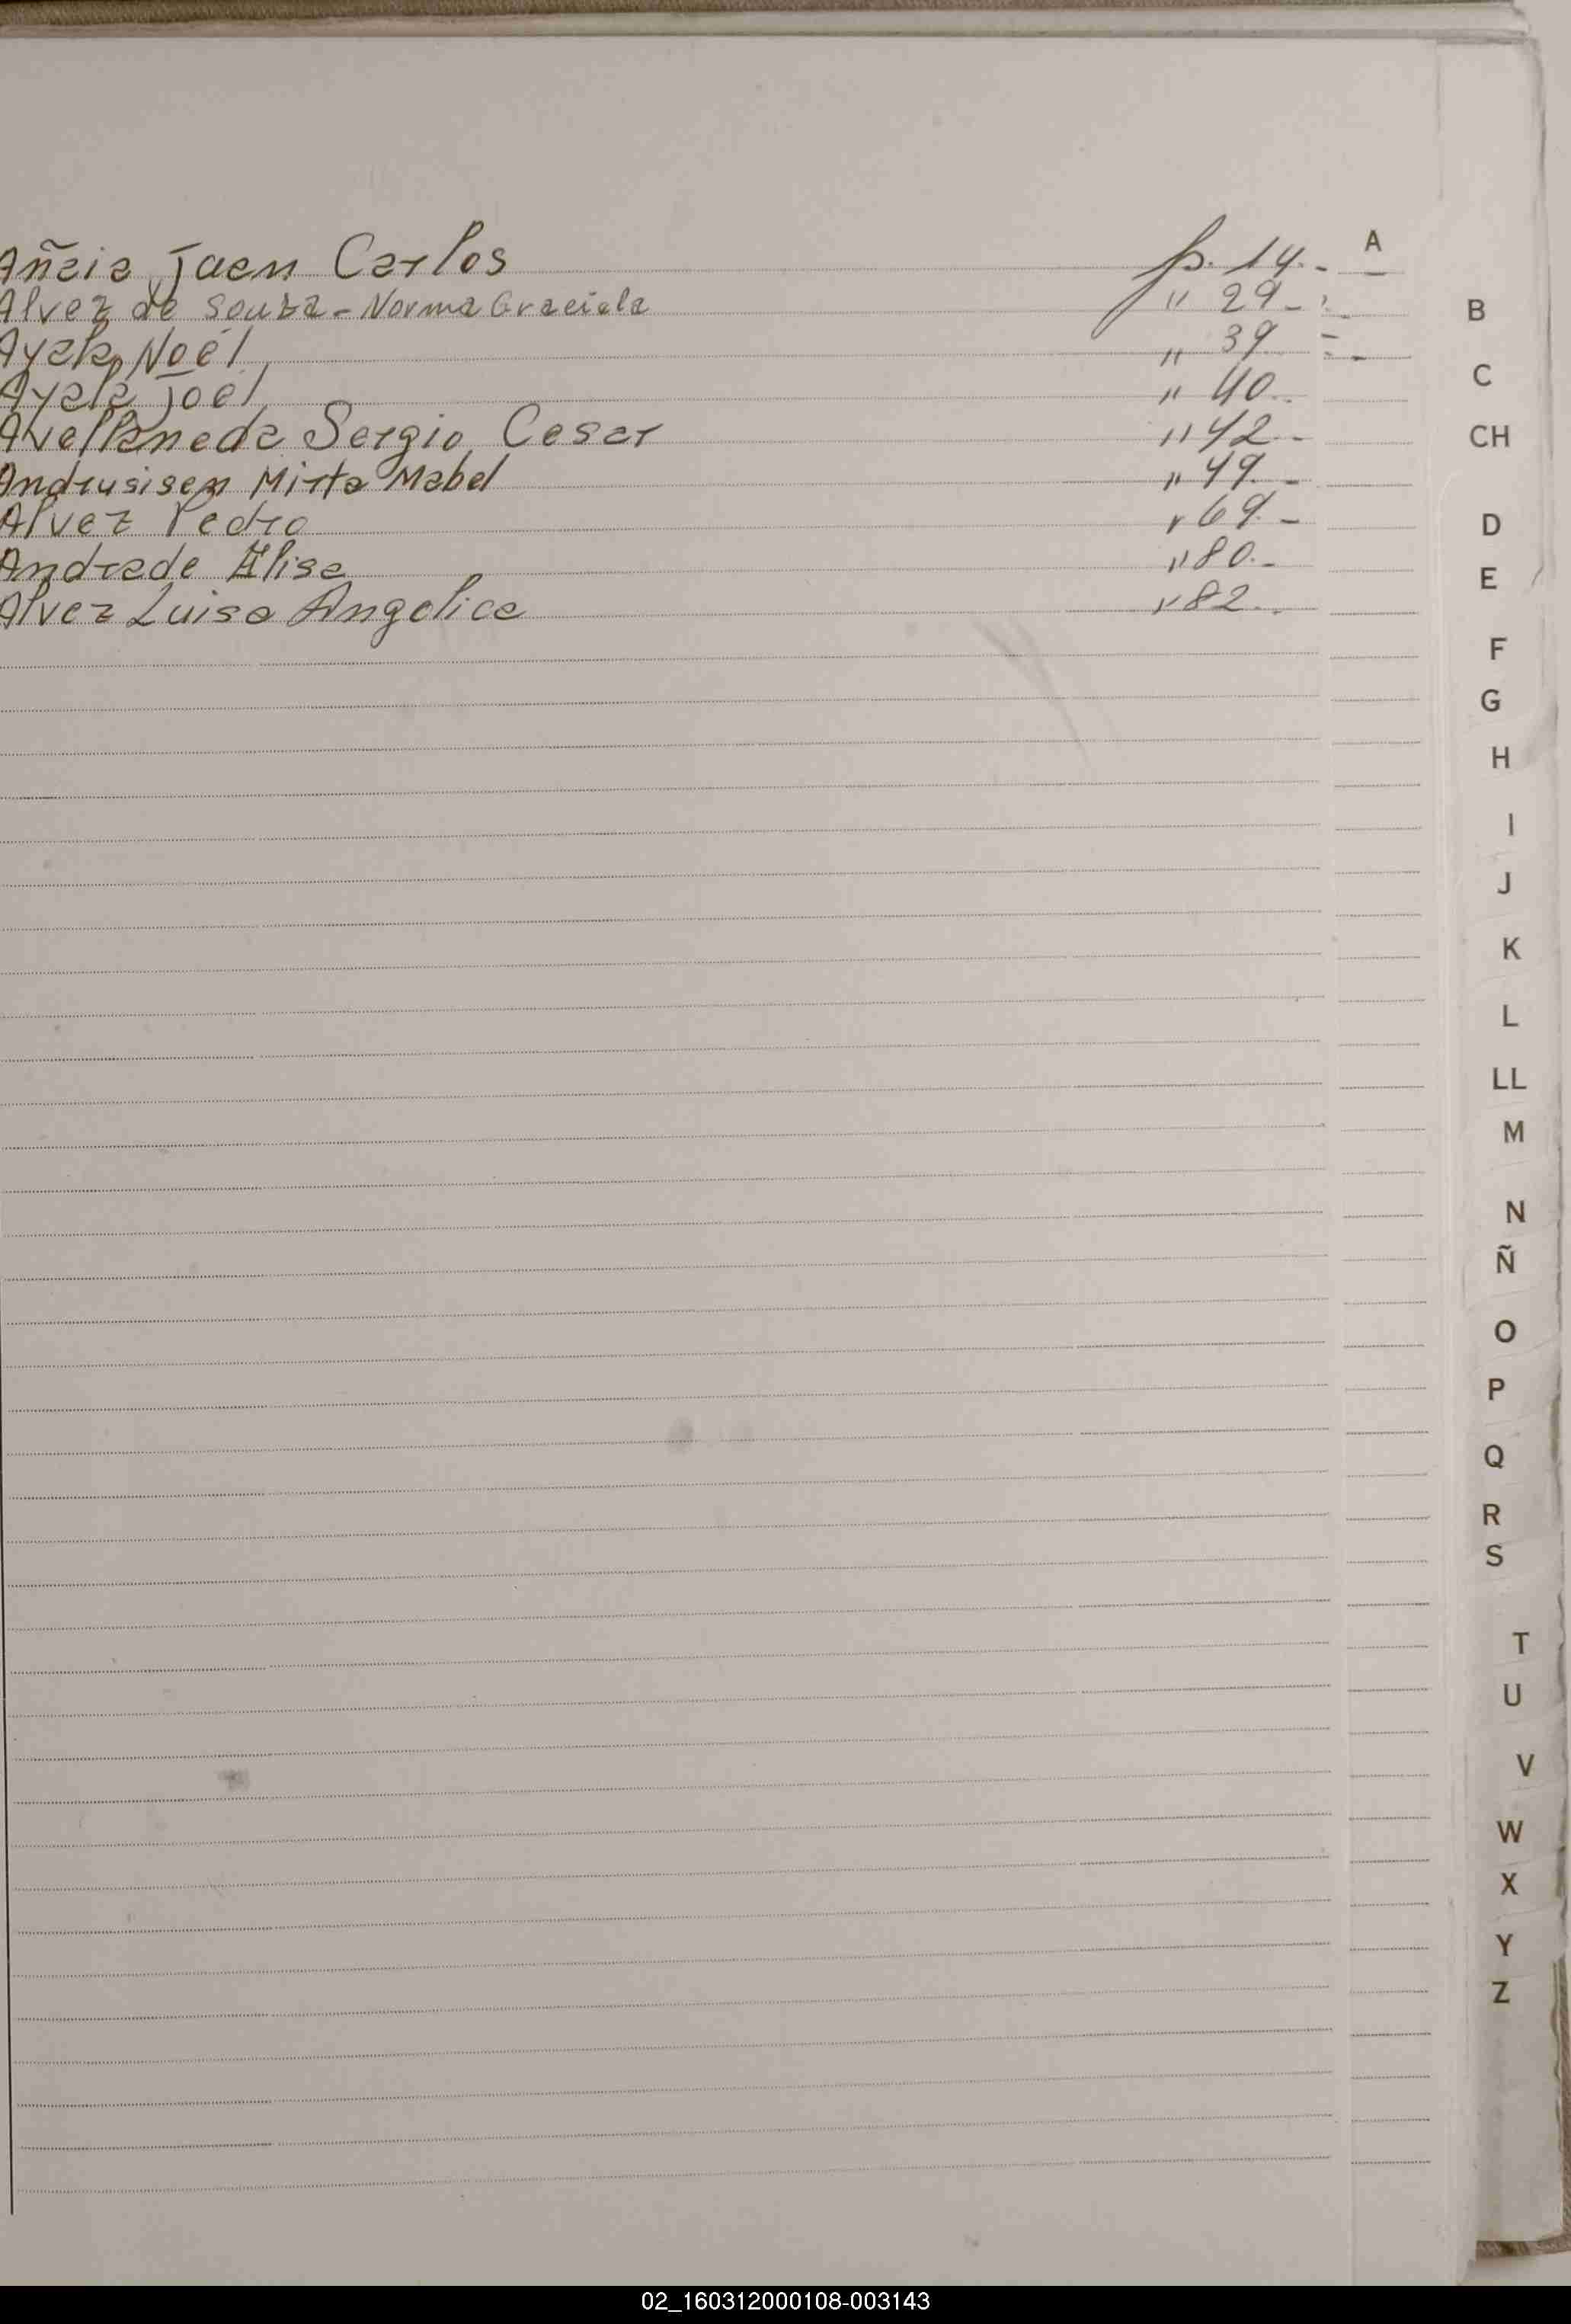 Añaia Juan Carlos p. 14.- A
Alvez de Souza - Norma Graciela " 29 -
Ayala Noél " 39
Ayala Joél " 40.
Avellaneda Sergio Cesar " 42 -
Andrusisen Mirta Mabel " 49. -
Alvez Pedro " 69. -
Andrade Elisa " 80.-
Alvez Luisa Angelica " 82.
B
C
CH
D
E
F
G
H
I
J
K
L
LL
M
N
Ñ
O
P
Q
R
S
T
U
V
W
X
Y
Z
02_160312000108-003143